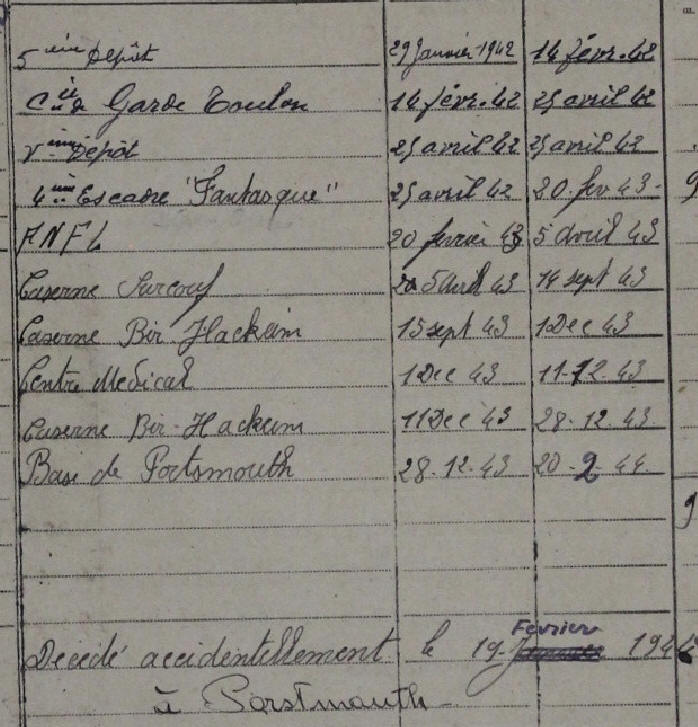 5ième Dépôt 29 Janvier 1942 14 févr. 42
Cie de Garde Toulon 14 févr. 42 25 avril 42
Vième Dépôt 25 avril 42 25 avril 42
4ième Escadre "Fantasque" 25 avril 42 20. fev 43.
FNFL 20 fevrier 43 5 avril 43
Caserne Surcouf 5 Avril 43 14 sept 43
Caserne Bir Hackeim 15 sept 43 1 Dec 43
Centre Medical 1 Dec 43 11. 12. 43
Caserne Bir Hackeim 11 Dec 43 28. 12. 43
Base de Portsmouth 28. 12. 43 20. 2. 44.
Fevrier
Décédé accidentellement le 19 1944
à Porstmouth